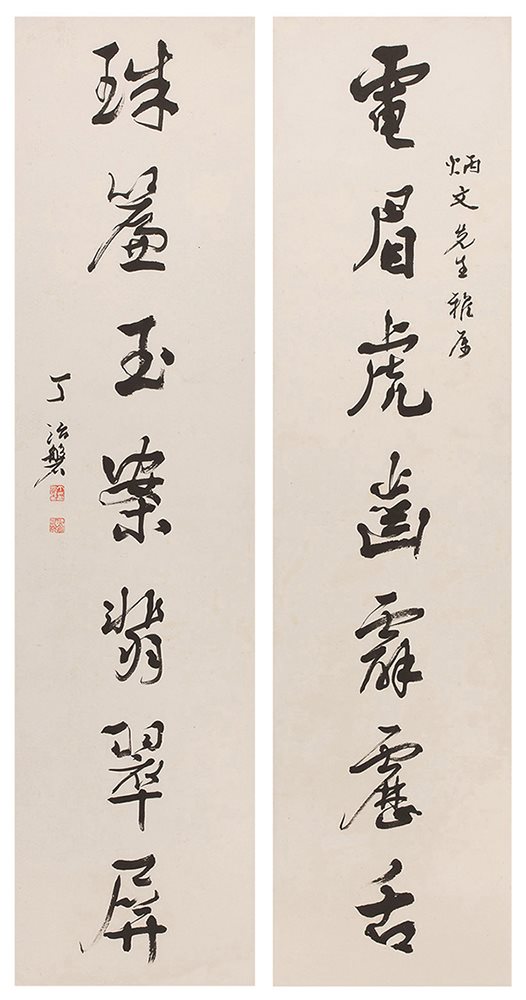 炳文先生雅属
電眉虎齒霹靂舌
珠簾玉案翡翠屏
丁治磐